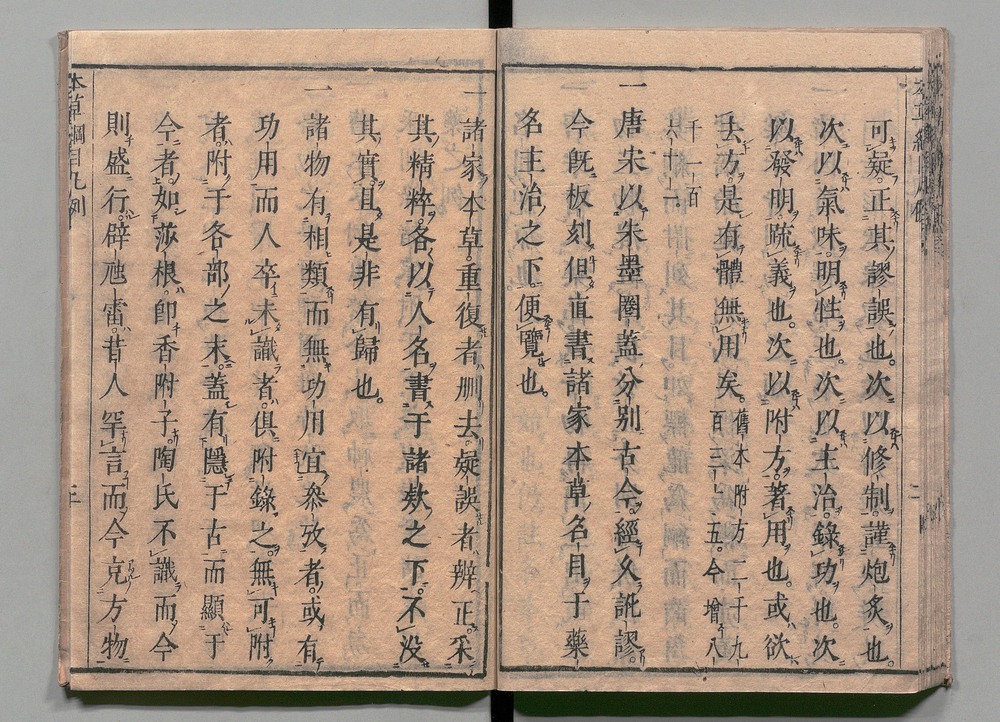 可疑。正其謬誤也。次以修制。謹炮炙也。
次以氣味。明性也。次以主治。錄功也。次
以發明。疏義也。次以附方。著用也。或欲
去方。是有體無用矣。舊本附方二千九
百三十五。今增八
千一百
六十一
一唐宋以朱墨圈蓋分別古今。經久訛謬。
今既板刻。但直書諸家本草名目于藥
名主治之下。便覽也。
一諸家本草。重復者刪去。疑誤者辨正。采
其精粹。各以人名。書于諸款之下。不没
其實。且是非有歸也。
一諸物有相類。而無功用。宜參攷者。或有
功用。而人卒未識者。俱附錄之。無可附
者。附于各部之末。蓋有隱于古而顯于
今者。如莎根即香附子。陶氏不識而今
則盛行。辟虺雷。昔人罕言而今充方物
本草綱目凡例
三